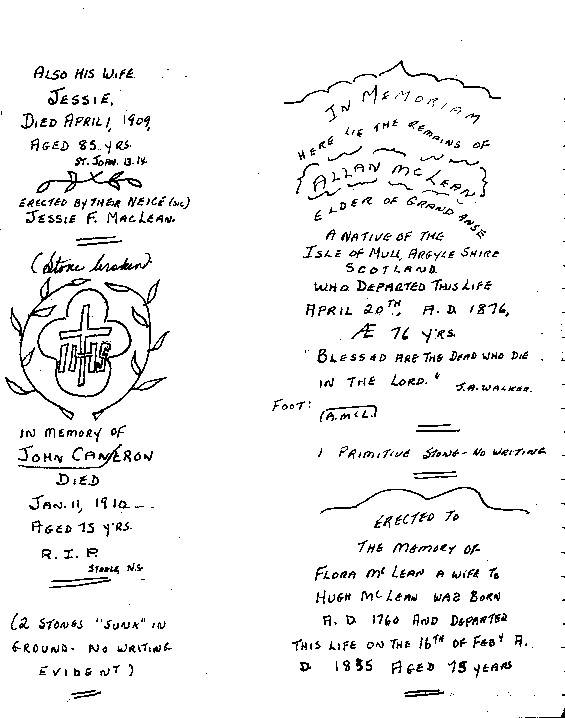 ALSO HIS WIFE
JESSIE,
DIED APRIL 1, 1909,
AGED 85 YRS.
ST. JOHN. 13.14.
ERECTED BY THER NEICE (SIC)
JESSIE F. MACLEAN.
(Stone broken)
IHS
IN MEMORY OF
JOHN CAMERON
DIED
JAN. 11, 1910
AGED 75 YRS.
R. I. P.
(2 STONES "SUNK" IN
GROUND - NO WRITING
EVIDENT)
IN MEMORIAM
HERE LIE THE REMAINS OF
ALLAN MCLEAN
ELDER OF GRAND ANSE
A NATIVE OF THE
ISLE OF MULL, ARGYLE SHIRE
SCOTLAND
WHO DEPARTED THIS LIFE
APRIL 20TH, A. D. 1876,
Æ 76 YRS.
"BLESSED ARE THE DEAD WHO DIE
IN THE LORD." J.A. WALKER.
FOOT: (A. MCL.)
1 PRIMITIVE STONE - NO WRITING
ERECTED TO
THE MEMORY OF
FLORA MCLEAN A WIFE TO
HUGH MCLEAN WAS BORN
A. D. 1760 AND DEPARTED
THIS LIFE ON THE 16TH OF FEBY A.
D. 1835 AGED 75 YEARS